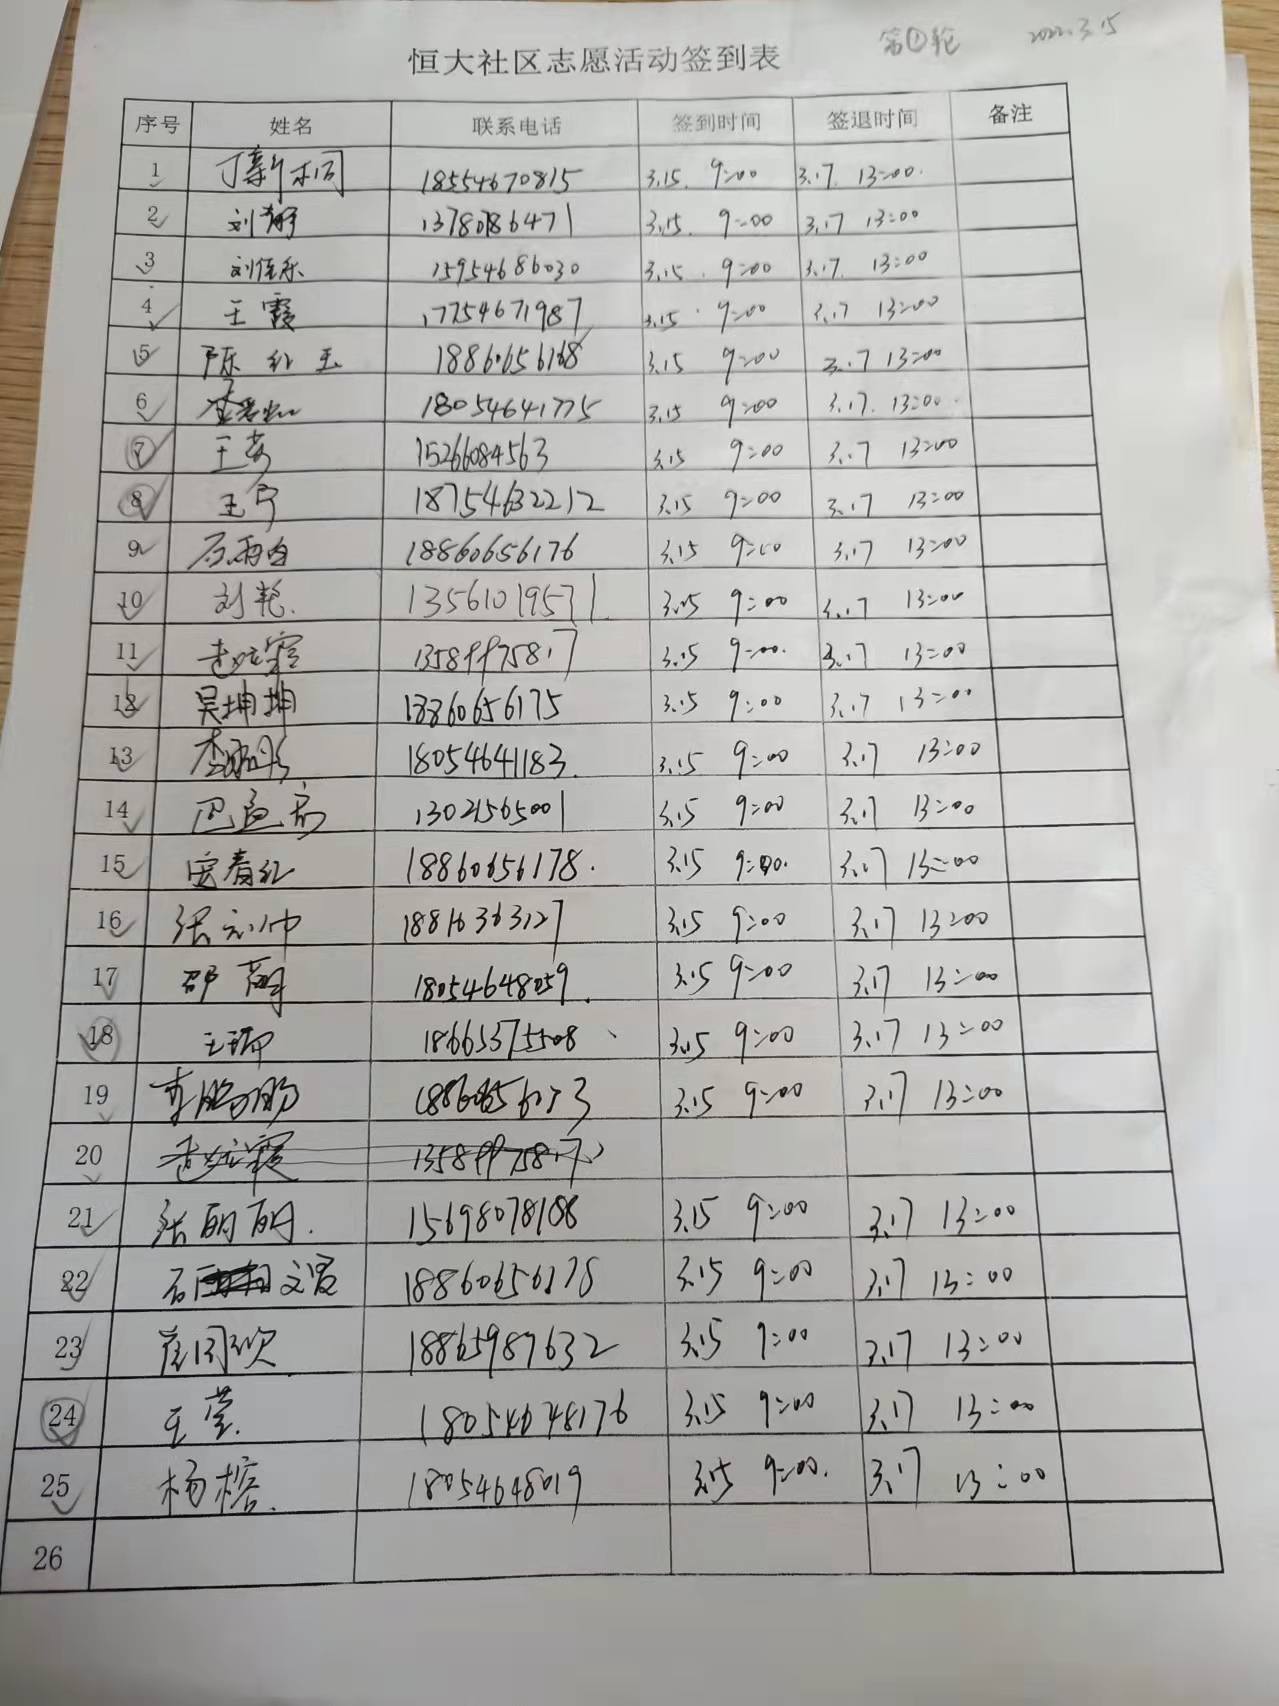 恒大社区志愿活动签到表 第①轮 2022.3.15
序号 姓名 联系电话 签到时间 签退时间 备注
1 丁新桐 18554670815 3.15. 9:00 3.17. 13:00.
2 刘静 13780786471 3.15. 9:00 3.17 13:00
3 刘佳乐 15954686030 3.15. 9:00 3.17. 13:00
4 王霞 17754671987 3.15. 9:00 3.17 13:00
5 陈红玉 18860656168 3.15 9:00 3.17 13:00
6 18054641775 3.15 9:00 3.17. 13:00.
7 王 15266084563 3.15 9:00 3.17 13:00
8 王宁 18754632212 3.15 9:00 3.17 13:00
9 18860656176 3.15 9:00 3.17 13:00
10 刘艳. 13561019571 3.15 9:00 3.17 13:00
11 13589975817 3.15 9:00. 3.17 13:00
12 吴坤坤 18860656175 3.15 9:00 3.17 13:00
13 李 18054641183. 3.15 9:00 3.17 13:00
14 巴 13021565001 3.15 9:00 3.17 13:00
15 春红 18860656178. 3.15 9:00. 3.17 13:00
16 张 18816363127 3.15 9:00 3.17 13:00
17 邵 18054648059. 3.15 9:00 3.17 13:00
18 王 18665375508 3.15 9:00 3.17 13:00
19 李鹏鹏 3.15 9:00 3.17 13:00
20 13589975817
21 张丽丽. 15698078188 3.15 9:00 3.17 13:00
22 石文霞 18860656178 3.15 9:00 3.17 13:00
23 崔同欣 18865987632 3.15 9:00 3.17 13:00
24 王莹. 18054648176 3.15 9:00 3.17 13:00
25 杨榕. 18054648019 3.15 9:00. 3.17 13:00
26